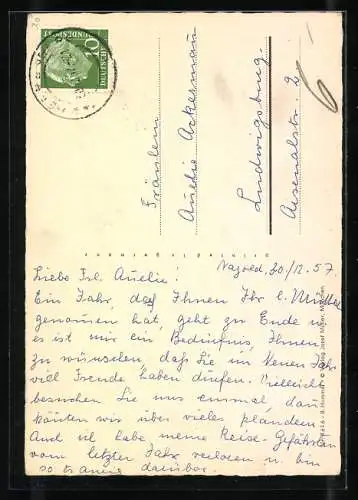 10
DEUTSCHE BUNDESPOST
Fräulein
Ackermann
Ludwigsburg.
Arsenalstr. 2
6
30/12. 57.
Liebe Frl. Aurelie!
Ein Jahr, das Ihnen Ihr l. Mutter
genommen hat, geht zu Ende u.
es ist mir ein Bedürfnis, Ihnen
zu wünschen, daß Sie im Neuen Jahr
viel Freude haben dürfen. Vielleicht
besuchen Sie uns einmal, dan
könten wir über vieles plaudern.
Auch ich habe meine Reise-Gefährtin
vom letzter Jahr verloren u. bin
so traurig darüber.